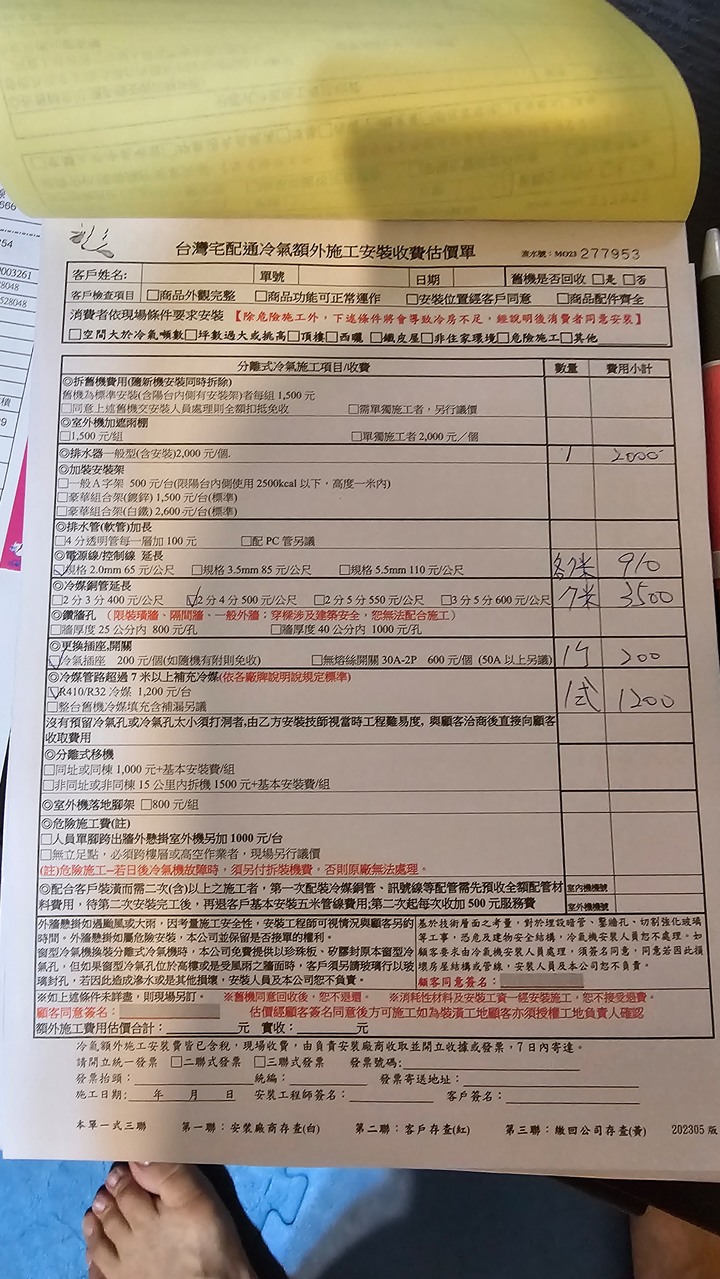 666
254
0003261
528048
528048
積
29
台灣宅配通冷氣額外施工安裝收費估價單 流水號：MO23 277953
客戶姓名: 單號 日期 舊機是否回收 □是 □否
客戶檢查項目 □商品外觀完整 □商品功能可正常運作 □安裝位置經客戶同意 □商品配件齊全
消費者依現場條件要求安裝【除危險施工外，下述條件將會導致冷房不足，經說明後消費者同意安裝】
□空間大於冷氣噸數□坪數過大或挑高□頂樓□西曬 □鐵皮屋□非住家環境□危險施工□其他
分離式冷氣施工項目/收費 數量 費用小計
◎拆舊機費用(隨新機安裝同時拆除)
舊機為標準安裝(含陽台內側有安裝架)者每組 1,500 元
□同意上述舊機交安裝人員處理則全額扣抵免收 □需單獨施工者，另行議價
◎室外機加遮雨棚
□1,500 元/組 □單獨施工者 2,000 元／個
◎排水器一般型(含安裝)2,000 元/個. 1 2000
◎加裝安裝架
□一般 A 字架 500 元/台(限陽台內側使用 2500kcal 以下，高度一米內)
□豪華組合架(鍍鋅) 1,500 元/台(標準)
□豪華組合架(白鐵) 2,600 元/台(標準)
◎排水管(軟管)加長
□4 分透明管每一層加 100 元 □配 PC 管另議
◎電源線/控制線 延長
☑規格 2.0mm 65 元/公尺 □規格 3.5mm 85 元/公尺 □規格 5.5mm 110 元/公尺 各7米 910
◎冷媒銅管延長
□2 分 3 分 400 元/公尺 ☑2 分 4 分 500 元/公尺 □2 分 5 分 550 元/公尺 □3 分 5 分 600 元/公尺 7米 3500
◎鑽牆孔 （限裝璜牆、隔間牆、一般外牆；穿樑涉及建築安全，恕無法配合施工）
□牆厚度 25 公分內 800 元/孔 □牆厚度 40 公分內 1000 元/孔
◎更換插座,開關
☑冷氣插座 200 元/個(如隨機有附則免收) □無熔絲開關 30A-2P 600 元/個 (50A 以上另議) 1個 200
◎冷媒管路超過 7 米以上補充冷媒(依各廠牌說明說規定標準)
☑R410/R32 冷媒 1,200 元/台 1式 1200
□整台舊機冷媒填充含補漏另議
沒有預留冷氣孔或冷氣孔太小須打洞者,由乙方安裝技師視當時工程難易度, 與顧客洽商後直接向顧客
收取費用
◎分離式移機
□同址或同棟 1,000 元+基本安裝費/組
□非同址或非同棟 15 公里內拆機 1500 元+基本安裝費/組
◎室外機落地腳架 □800 元/組
◎危險施工費(註)
□人員單腳跨出牆外懸掛室外機另加 1000 元/台
□無立足點，必須跨樓層或高空作業者，現場另行議價
(註)危險施工–若日後冷氣機故障時，須另付拆裝機費。否則原廠無法處理。
◎配合客戶裝潢而需二次(含)以上之施工者，第一次配裝冷媒銅管、訊號線等配管需先預收全額配管材 室內機機號
料費用，待第二次安裝完工後，再退客戶基本安裝五米管線費用;第二次起每次收加 500 元服務費 室外機機號
外牆懸掛如遇颱風或大雨，因考量施工安全性，安裝工程師可視情況與顧客另約
時間。外牆懸掛如屬危險安裝，本公司並保留是否接單的權利。
窗型冷氣機換裝分離式冷氣機時，本公司免費提供以珍珠板、矽膠封原本窗型冷
氣孔，但如果窗型冷氣孔位於高樓或是受風雨之牆面時，客戶須另請玻璃行以玻
璃封孔，若因此造成滲水或是其他損壞，安裝人員及本公司恕不負責。
基於技術層面之考量，對於埋設暗管、鑿牆孔，切割強化玻璃
等工事，恐危及建物安全結構，冷氣機安裝人員恕不處理。如
顧客要求由冷氣機安裝人員處理，須簽名同意，同意若因此損
壞房屋結構或管線，安裝人員及本公司恕不負責。
顧客同意簽名：
※如上述條件未詳盡，則現場另訂。 ※舊機同意回收後，恕不退還。 ※消耗性材料及安裝工資一經安裝施工，恕不接受退費。
顧客同意簽名： 估價經顧客簽名同意後方可施工如為裝潢工地顧客亦須授權工地負責人確認
額外施工費用估價合計： 元 實收： 元
冷氣額外施工安裝費皆已含稅，現場收費，由負責安裝廠商收取並開立收據或發票，7 日內寄達。
請開立統一發票 □二聯式發票 □三聯式發票 發票號碼：
發票抬頭： 統編： 發票寄送地址：
施工日期： 年 月 日 安裝工程師簽名： 客戶簽名：
本單一式三聯 第一聯：安裝廠商存查(白) 第二聯：客戶存查(紅) 第三聯：繳回公司存查(黃) 202305 版